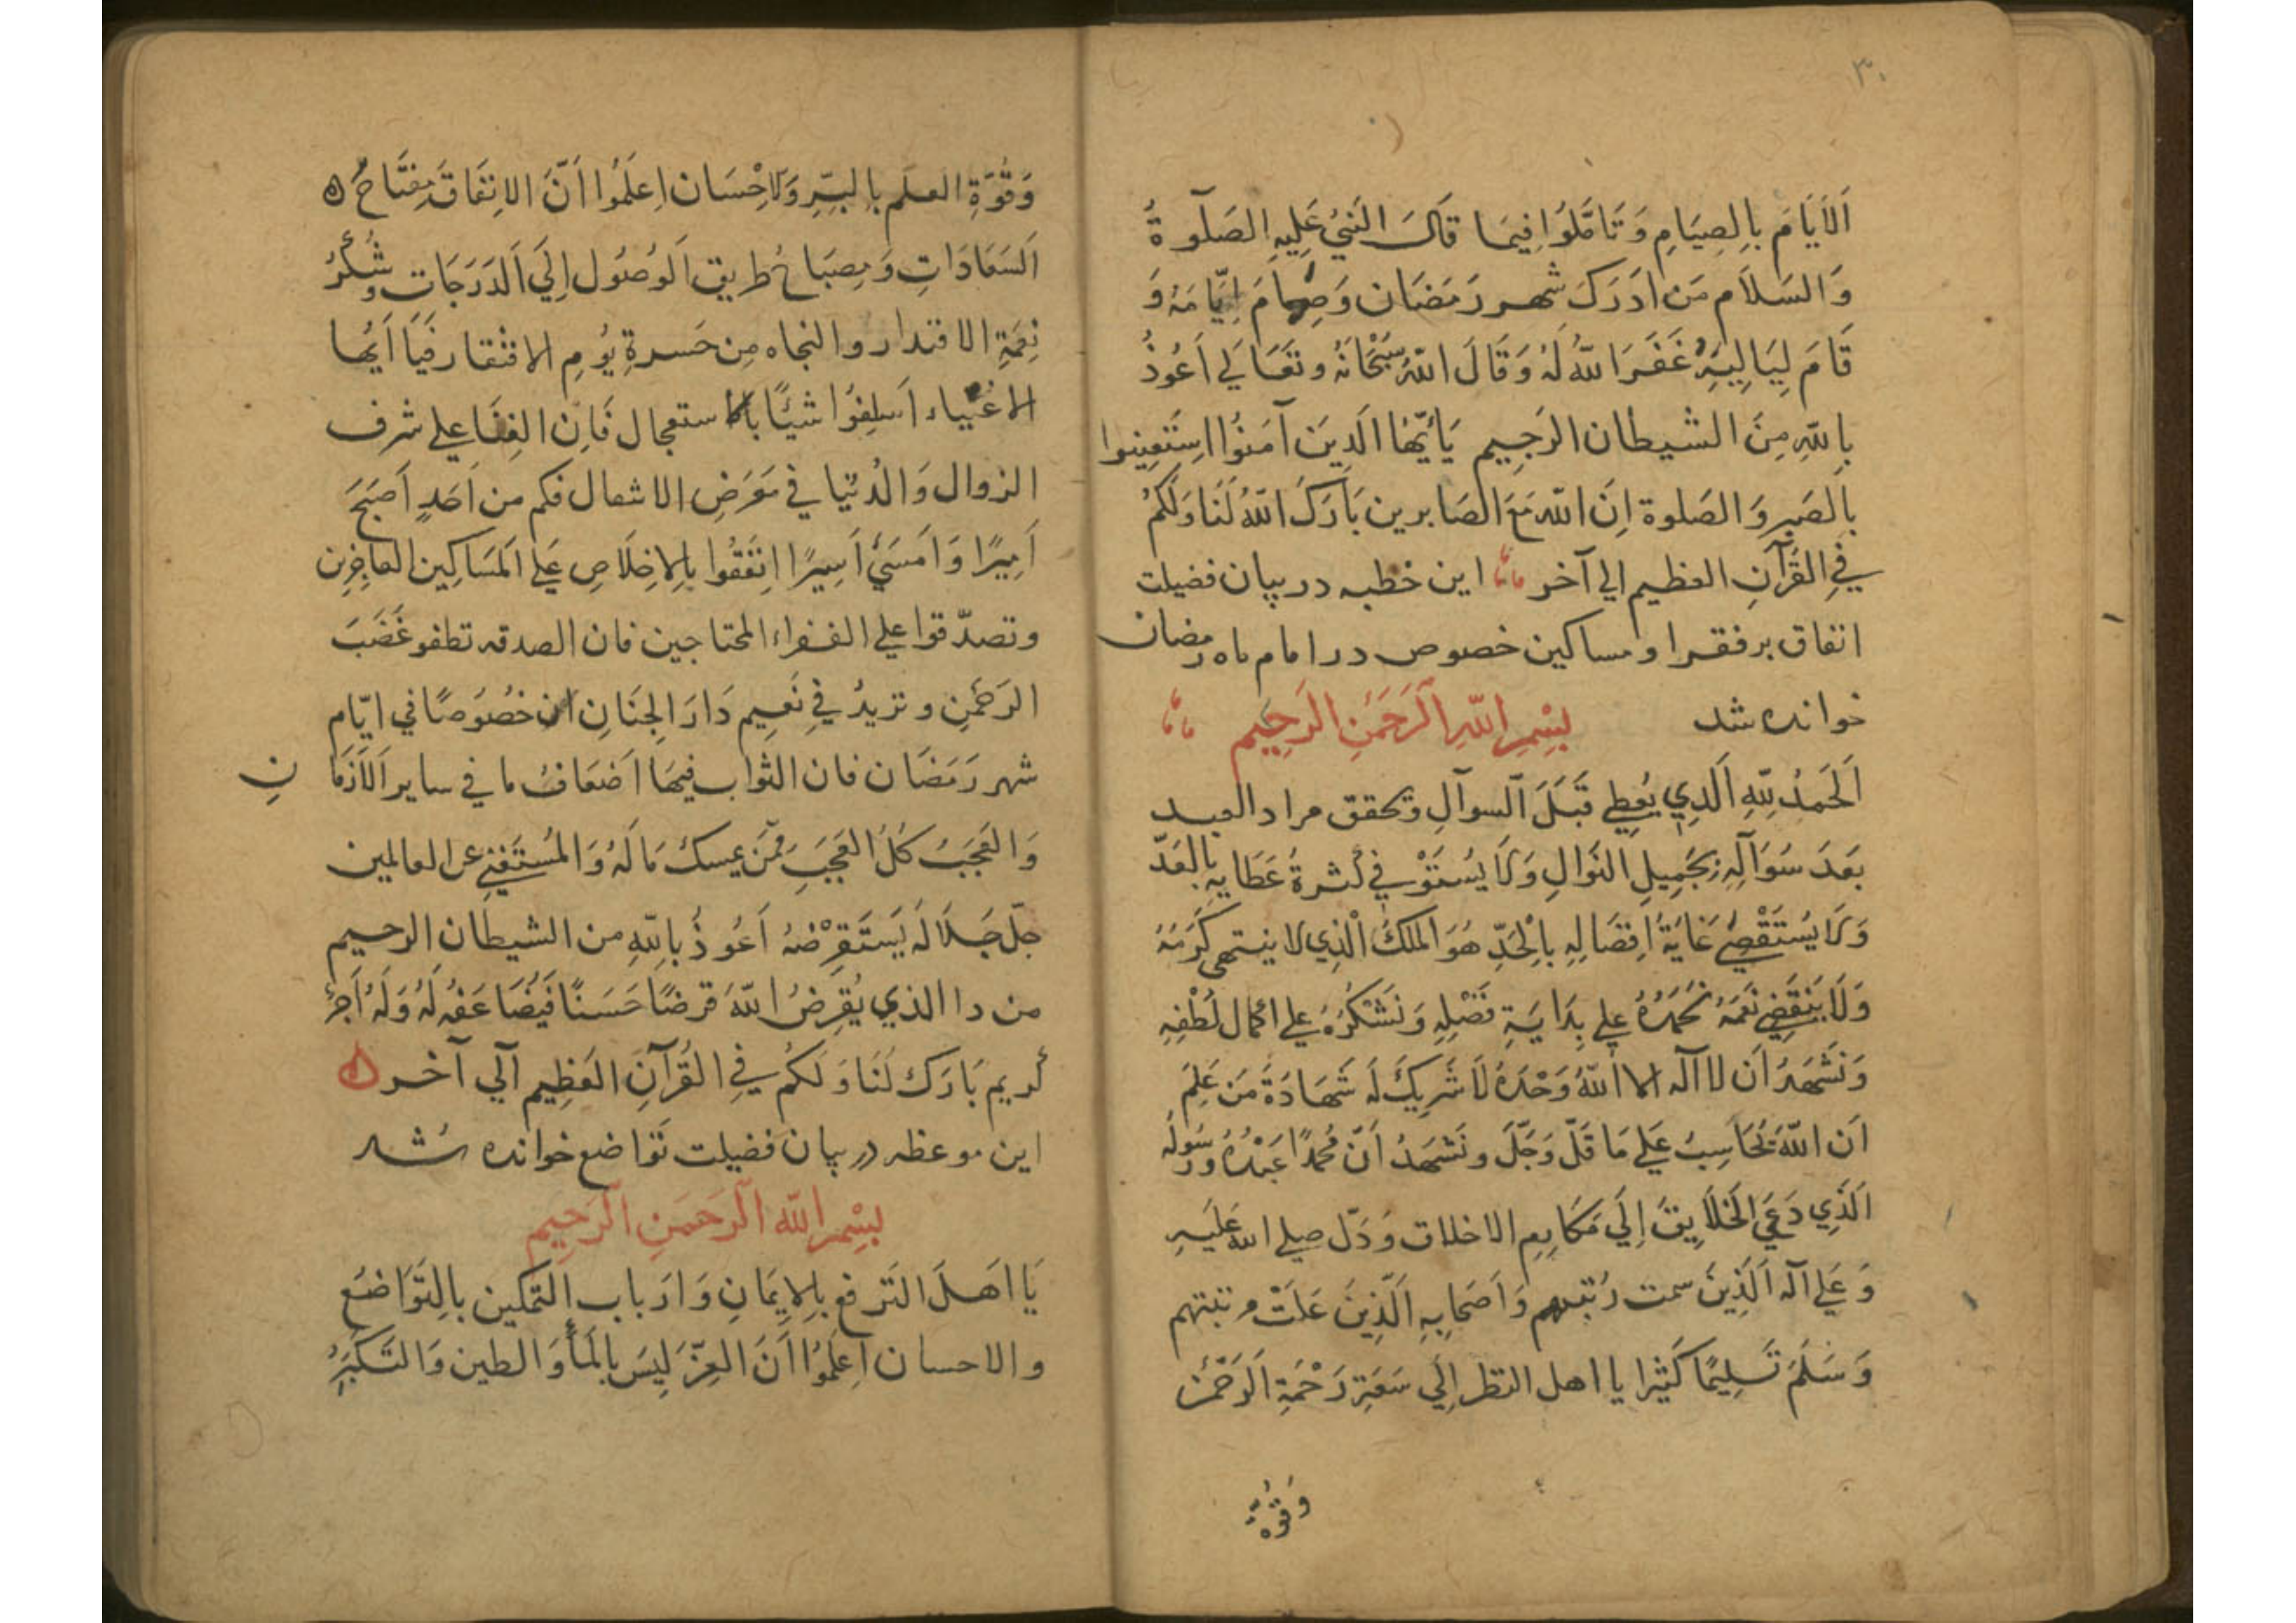 ۳۰
اَلاَيَامَ بِالصِيَامِ وَتَامَّلوُا فِيمَا قَالَ النَبيُ عَلِيهِ الصَلَوةُ
وَالسَلاَم مَن ادَرَكَ شَهر رَمَضَان وَصَامَ اِيَّامَهُ وَ
قَامَ لِيَالِيَهُ غَفَرَ اللّهُ لَهُ وَقَالَ اللّهُ سُبْحَانَهُ وتَعَالَي اَعُوذُ
بِاللّهِ مِنَ الشيطان الرَجِيم يَاَيّهُا الَذِينَ آمَنُوا استَعِينوا
بِالصَبِر وَالصَلوة اِنَ اللّهَ مَعَ الصَابرين بَارَكَ اللّهُ لَنَا وَلَكُمُ
فيِ القُرآنِ العظيم الي آخر اين خطبه در بيان فضيلت
انفاق بر فقرا و مساكين خصوص در امام ماه رمضان
خوانده شد بِسْمِ اللّهِ الَرحَمَنِ الَرحِيمِ
اَلحَمدُ لِلّهِ الَذِي يُعِطي قَبَلَ السوآلِ وتحقق مراد العبد
بَعَدَ سُوَآلِهِ بِجَمِيلِ النَوَالِ وَلَا يُستَوْفي كَثرةُ عَطَايهِ بِالعَدّ
وَلَا يُسْتَقْصيُ غَايَةُ اِفضَالِهِ بِالْحَدِّ هُوَ المَلكُ الْذِي لا ينتهي كَرَمَهُ
وَلَا يَنقَضِي نَعَمَهُ نَحُمَدُهُ علي بِدَايَةِ فَضْلِهِ وَنَشْكُرُهُ علي اكمال لُطْفِهِ
وَنَشَهَدُ اَن لا آله الا اللّهُ وَحْدَهُ لاَ شَرِيكَ لَه شَهَادَةَ مَن عَلِمَ
اَن اللّهَ يُحَاسِبُ عَلَي مَا قَلّ وَجَلَّ ونَشَهدُ اَنّ مُحمَدًا عَبْدُهُ وَرَسُولُه
اَلَذِي دَعَي الخَلاَيِقَ اِلَي مَكَارِمِ الاخلاق وَدَلّ صلي اللّه عَليَهِ
وَعَلي آله اَلَذِينَ سمت رُتبهم وَاَصحَابِهِ الَّذِينَ عَلَتْ رتبتهم
وَسَلَمَ تَسِليمًا كَثيرا يا اهل النظر اِلَي سَعَةِ رَحْمَةِ الَرَحَمن
وَقُوة
وَقُوَةِ العلم بِالبِرِّ وَلاحْسَان اِعلَمُوا اَنَّ الانِفَاقَ مِفتَاحُ ه
اَلسَعَادَاتِ وَمِصبَاحُ طَريق الَوصُول اِلَي اَلدَرَجَات وشُكرُ
نِعمَةِ الاقتدار والنجاه مِن حَسرةِ يوُمِ الافتقار فَيَا اَيُها
الاغنياء اَسلِفُوا شيئًا بالاستعجال فَاِن الغِنَا علي شَرف
الزوال وَالدُنيا في مَعَرَضِ الاشعال فكم من اَحَدٍ اَصَبَحَ
اَمِيرًا وَاَمسَيَ اَسِيرًا انِفَقُوا بِالاِخلَاصِ عَلَي المَسَاكِين العاجِزِن
وتصدّقوا علي الفقراء المحتاجين فان الصدقه تطفو غَضَبَ
الرَحمنِ وتزيدُ في نَعِيم دَارَ الجِنَانِ ان خصُوصًا في ايّام
شهر رَمَضَان فان الثواب فيهَا اَضعَافُ ما في ساير اَلاَزمَا نِ
وَالعَجَبَ كُلُ العَجَبِ مِمَّن يمسك مَالَهُ وَالمُستَغنِي عن العالمين
جلّ جَلَالَه يَستَقرِضُهُ اَعُوذُ بِاللّهِ من الشيطان الرحيم
من دا الذي يُقرِضُ اللّهَ قرضًا حَسَنًا فَيُضَاعَفهُ لَهُ وَلَهُ اَجرُ
كريم بَارَكَ لَنَا وَلَكُم فيِ القُرآنِ العَظِيم آلي آخر ه
اين موعظه در بيان فضيلت تَوَاضع خوانده شد
بِسْمِ اللّه الَرحَمَنِ الَرحِيمِ
يَا اَهلَ التَرفع بِالاِيمَانِ وَارَباب التَمكين بِالتَوَاضَع
والاحسان اِعلَمُوا اَنَ العِزّ لَيسَ بِالمَأ وَالطين وَالتَكَبُرِ